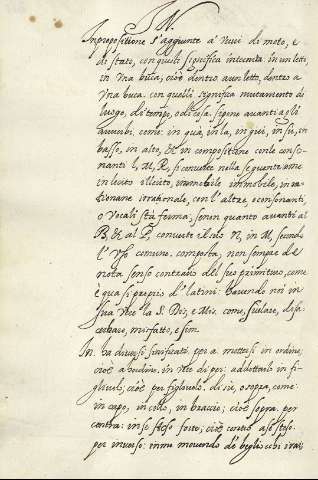 IN
In propositione s'aggiunte a' Verbi di moto, e
di stato, con quali significa intenta in un letto,
in Una buca, cioè dentro a un letto, dentro a
Una buca. con quelli significa mutamento di
luogo, di tempo, o di cosa. si pone avanti agli
avverbi, come in qua, in la, in qui, in su, in
basso, in alto, & in compositione con le conso-
nanti L, M, R, si converte nella seguente, come
illecito, immobile immobile, inra-
tionale irrationale, con l'altre consonanti,
o Vocali sta ferma, se non quanto avanti al
B, & al P, converte il suo N, in M, secondo
l'uso comune. composta, non sempre de
nota senso contrario del suo primitivo, come
è quasi proprio d'latini: havendo noi in
sua Vece la S. Dis, e Mis. come,
misfatto, e sim.
In. ha diversi significati. per a mettersi in ordine,
cioè a ordine, in Vece di per: addottarlo in fi-
gliuolo, cioè per figliuolo. di sù, o sopra, come
in capo, in collo, in braccio; cioè sopra. per
contra: in se stesso forte; cioè contro a se stesso.
per inverso: in me movendo de' begli occhi i rai;